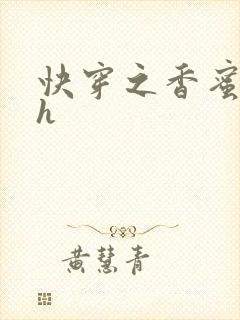 快穿之香蜜
h
黄慧青